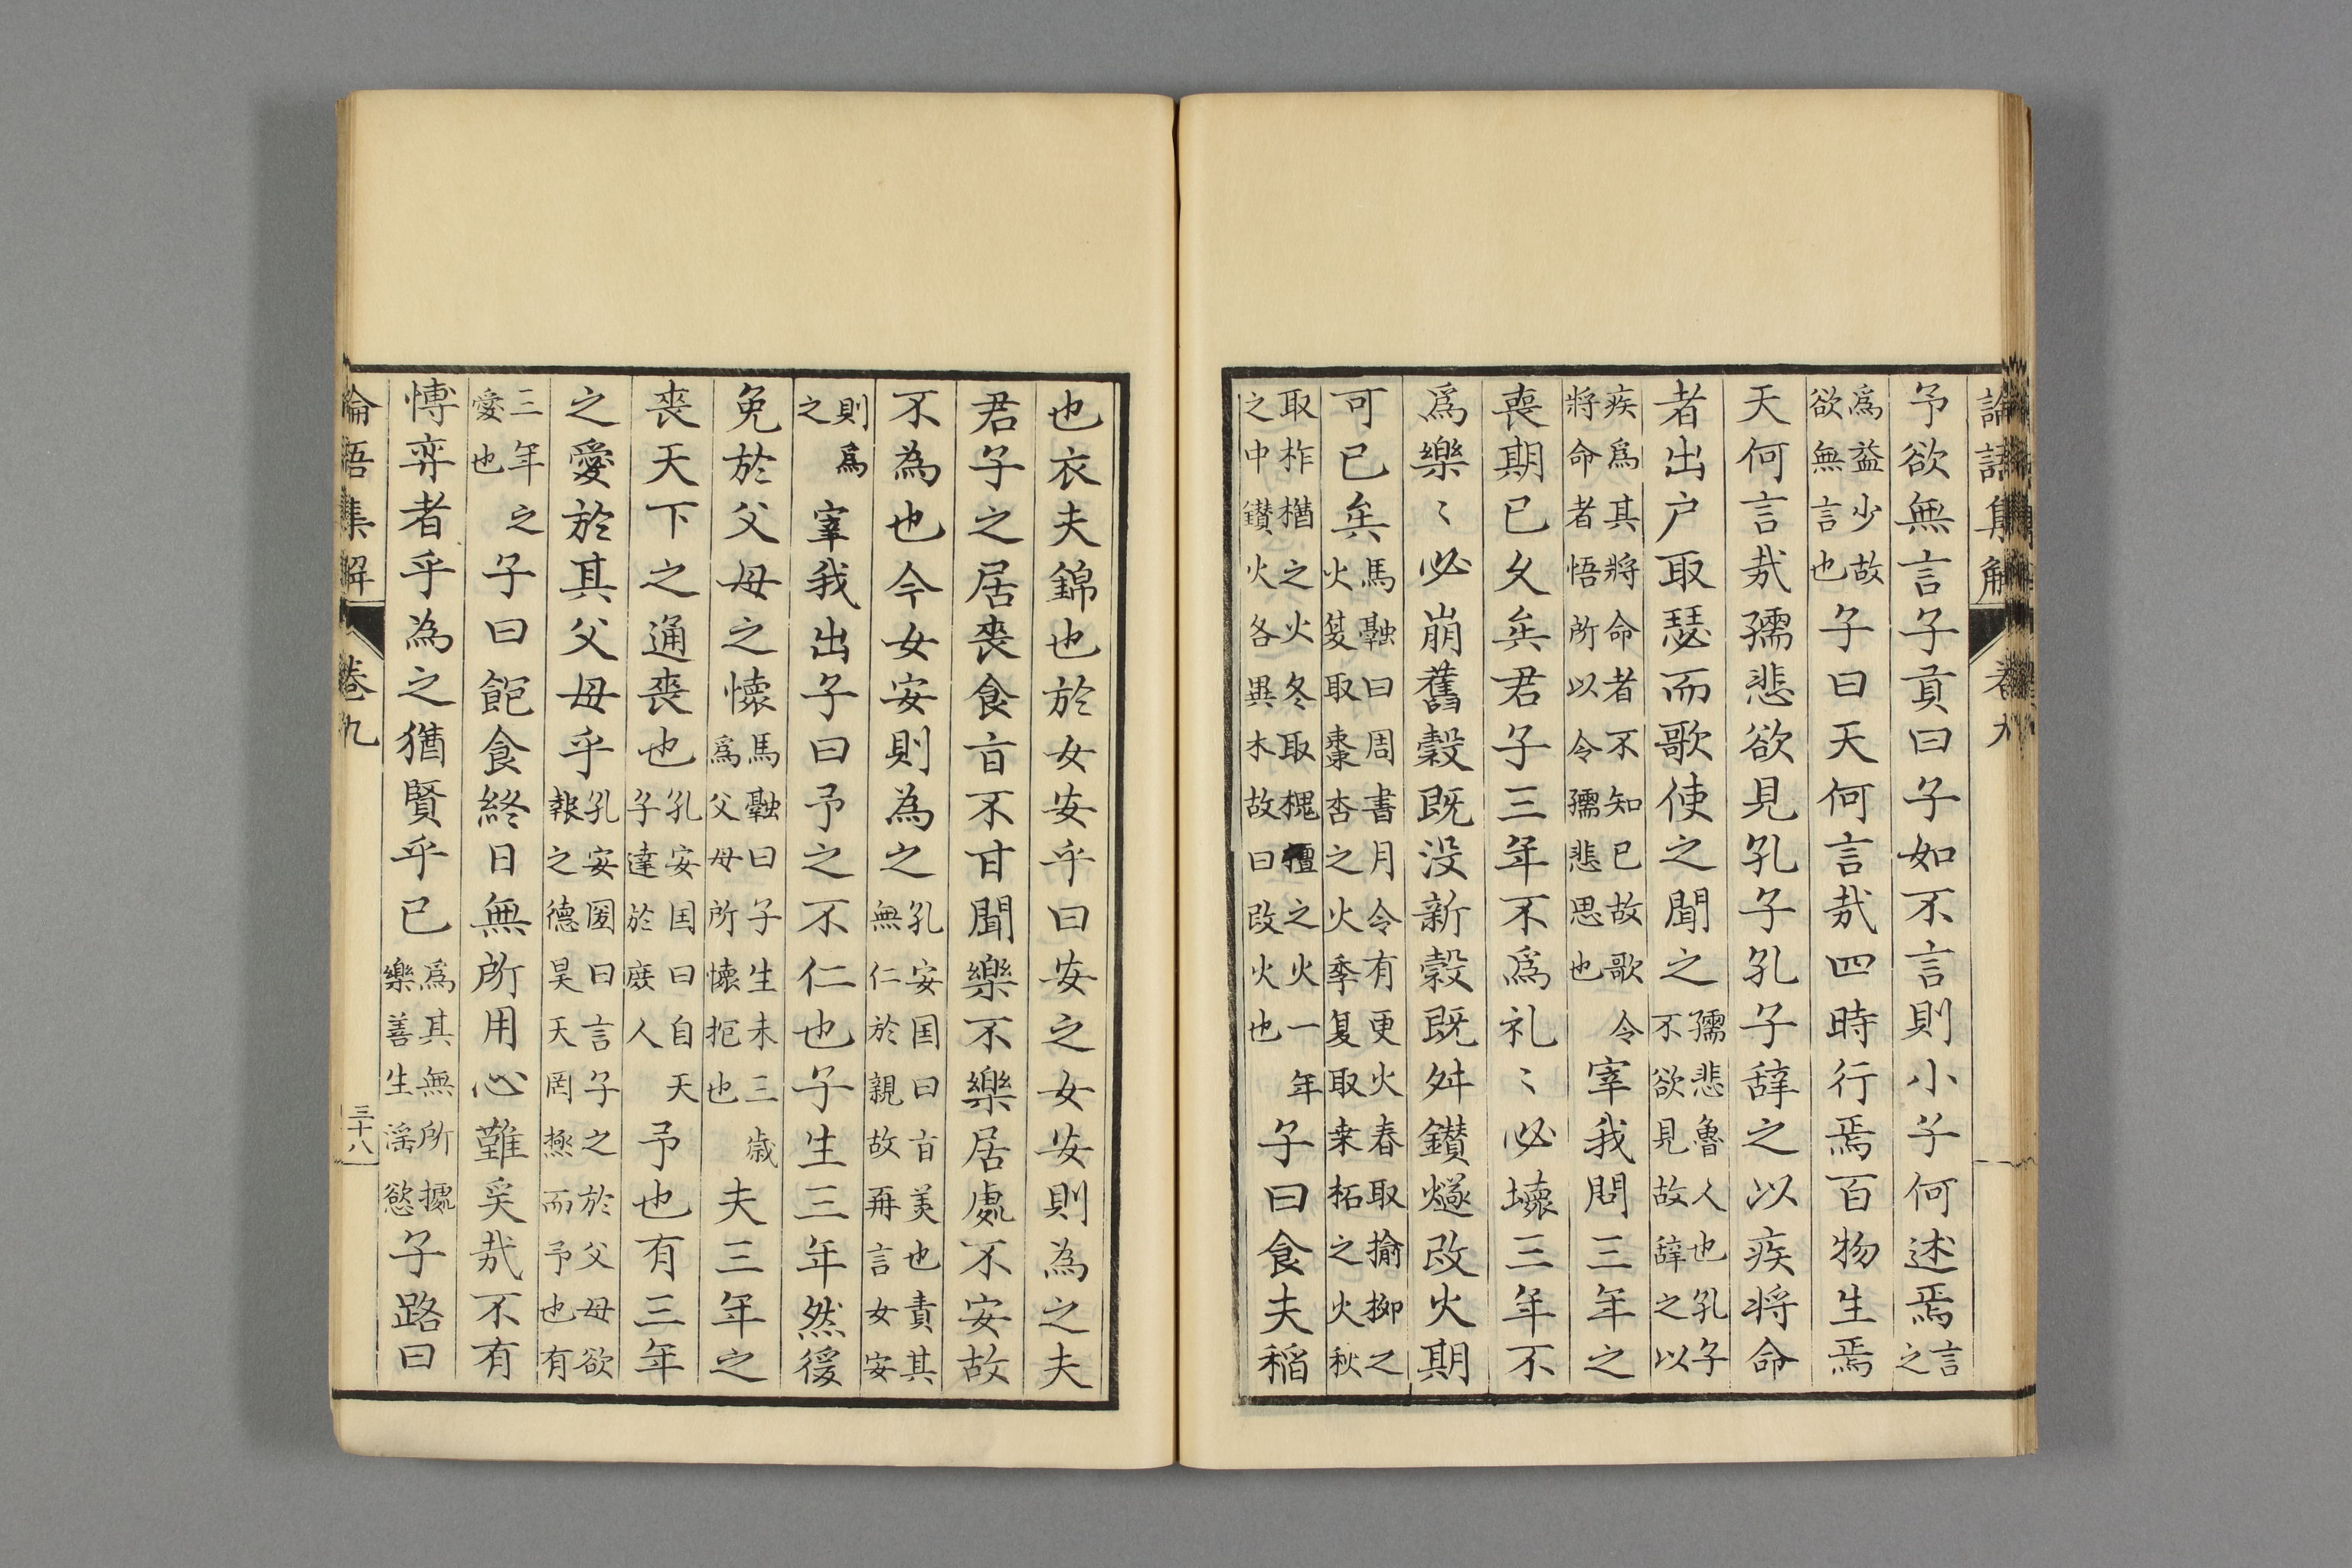 論語集解 卷九
予欲無言子貢曰子如不言則小子何述焉言之
爲益少故欲無言也子曰天何言哉四時行焉百物生焉
天何言哉孺悲欲見孔子孔子辭之以疾将命
者出户取瑟而歌使之聞之孺悲魯人也孔子不欲見故辞之以
疾爲其將命者不知已故歌令將命者悟所以令孺悲思也宰我問三年之
喪期已久矣君子三年不爲礼〻必壊三年不
爲樂〻必崩舊穀既没新穀既舛鑚燧改火期
可已矣馬融曰周書月令有更火春取揄柳之火夏取棗杏之火季夏取桒柘之火秋
取柞楢之火冬取槐檀之火一年之中鑚火各異木故曰改火也子曰食夫稲
也衣夫錦也於女安乎曰安之女安則為之夫
君子之居喪食旨不甘聞樂不樂居處不安故
不為也今女安則為之孔安国曰旨美也責其無仁於親故再言女安
則爲之宰我出子曰予之不仁也子生三年然後
免於父母之懐馬融曰子生未三歳爲父母所懐抱也夫三年之
喪天下之通喪也孔安国曰自天子達於庶人予也有三年
之愛於其父母乎孔安国曰言子之於父母欲報之德昊天罔極而予也有
三年之愛也子曰飽食終日無所用心難矣哉不有
博弈者乎為之猶賢乎已爲其無所據樂善生滛慾子路曰
論語集解 卷九 三十八